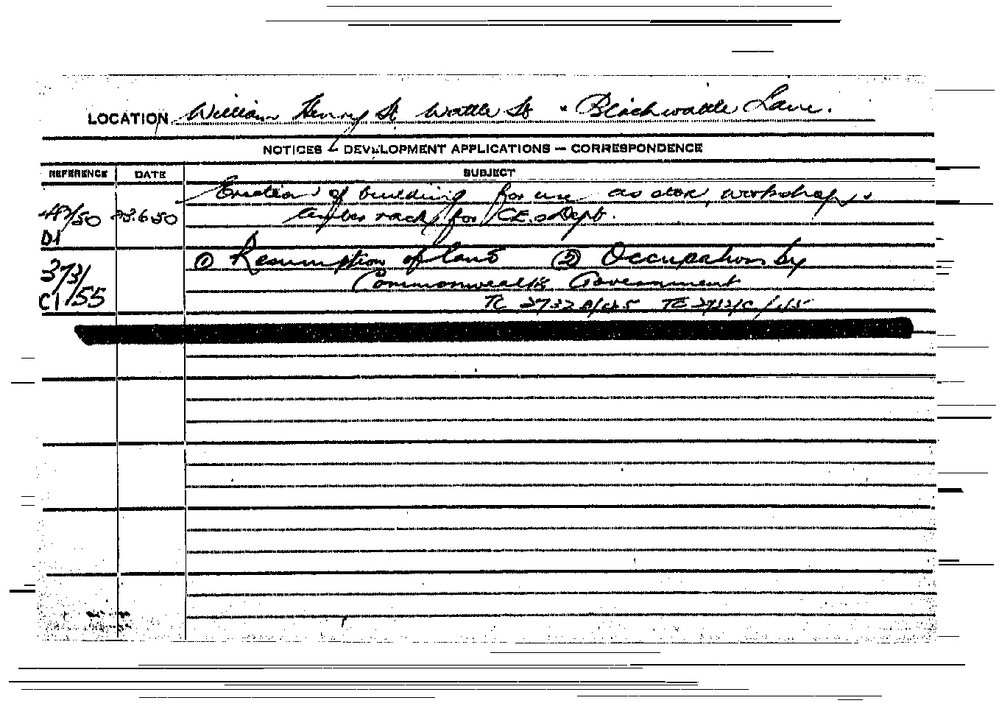 LOCATION William Henry St Wattle St & Blackwattle Lane.
NOTICES — DEVELOPMENT APPLICATIONS — CORRESPONDENCE
REFERENCE DATE SUBJECT
Erection of building for use as store, workshop &
/50 28.6.50 timber racks for C.E.s Dept.
D1
① Resumption of land ② Occupation by
373/ Commonwealth Government
C1/55 TC